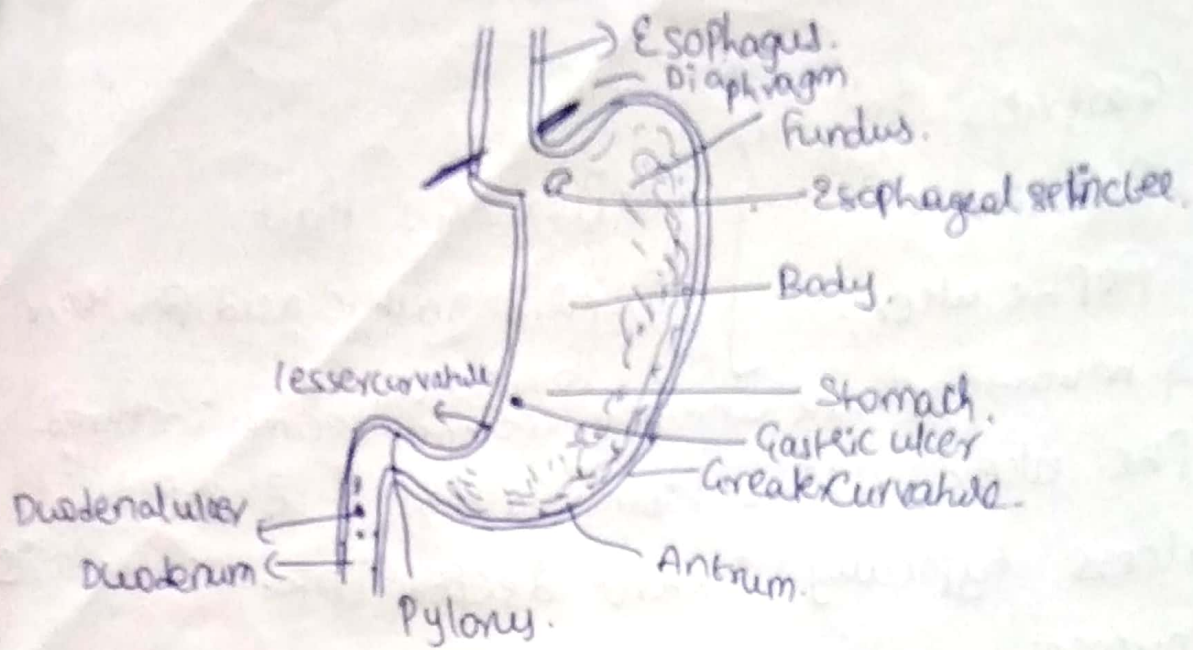 Esophagus.
Diaphragm
Fundus.
Esophageal sphincter
Body.
lessercurvature
Stomach.
Gastric ulcer
Greater Curvature.
Duodenal ulcer
Duodenum
Antrum.
Pylorus.